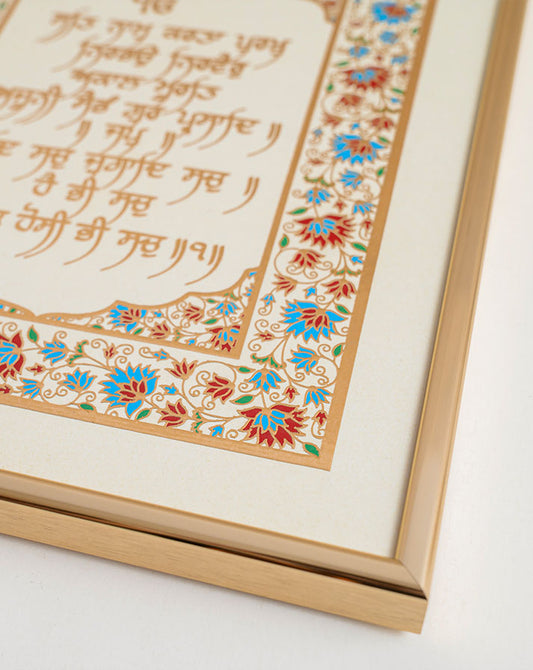 ੴ
ਸਤਿ ਨਾਮੁ ਕਰਤਾ ਪੁਰਖੁ
ਨਿਰਭਉ ਨਿਰਵੈਰੁ
ਅਕਾਲ ਮੂਰਤਿ
ਅਜੂਨੀ ਸੈਭੰ ਗੁਰ ਪ੍ਰਸਾਦਿ ॥
॥ ਜਪੁ ॥
ਸਚੁ ਜੁਗਾਦਿ ਸਚੁ ॥
ਹੈ ਭੀ ਸਚੁ
ਹੋਸੀ ਭੀ ਸਚੁ ॥੧॥